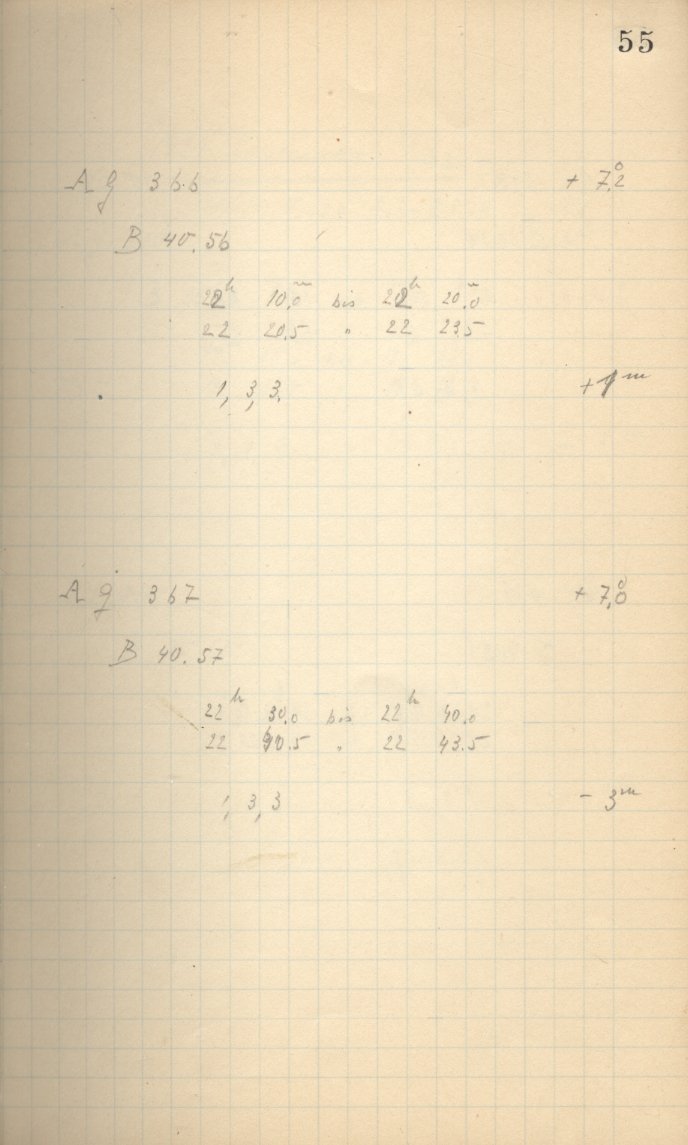 55
A g 366 + 7,2°
B 40.56
22h 10,0m bis 22h 20,0m
22 20,5 " 22 23,5
1, 3, 3. + 1m
A g 367 + 7,0°
B 40.57
22h 30,0 bis 22h 40,0
22 40.5 " 22 43.5
1, 3, 3 - 3m